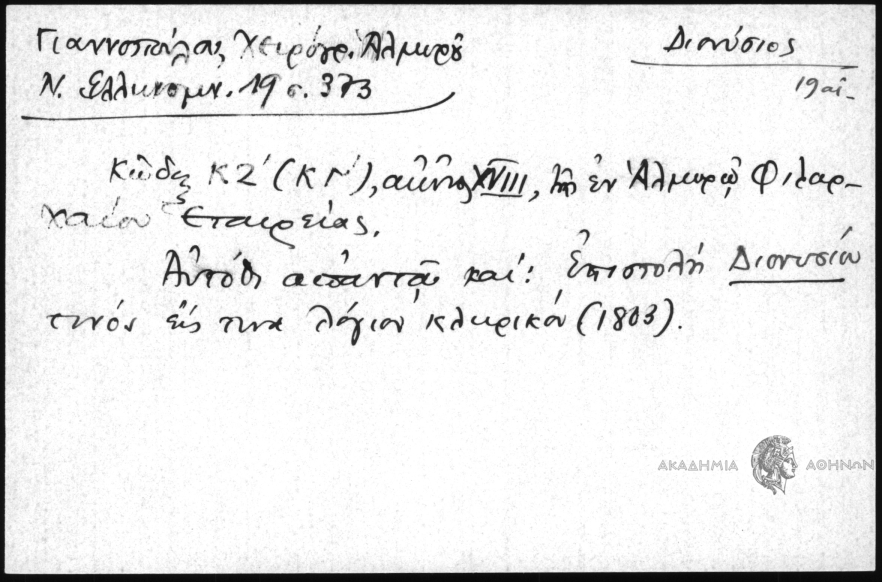 Γιαννοπούλου, Χειρόγρ. Ἁλμυροῦ
Διονύσιος
Ν. Ἑλληνομν. 19 σ. 373
19 αἰ.
Κῶδιξ ΚΖ΄ (ΚΓ΄), αἰῶνος XVIII, τῆς ἐν Ἁλμυρῷ Φιλαρ-
χαίου Ἑταιρείας.
Αὐτόθι ἀπαντᾷ καί: Ἐπιστολὴ Διονυσίου
τινός εἴς τινα λόγιον κληρικόν (1803).
ΑΚΑΔΗΜΙΑ ΑΘΗΝΩΝ